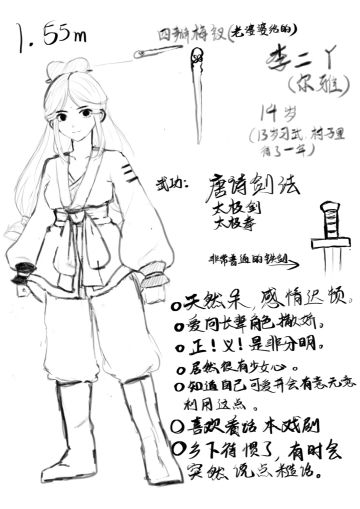 1.55m
四瓣梅钗(老婆婆给的)
李二丫
(尔雅)
14岁
(13岁习武,村子里
待了一年)
武功: 唐诗剑法
太极剑
太极拳
非常普通的铁剑
天然呆,感情迟顿。
爱向长辈角色撒娇。
正!义!是非分明。
居然很有少女心。
知道自己可爱并会有意无意
利用这点。
喜欢看话本戏剧
乡下待惯了,有时会
突然说点糙话。